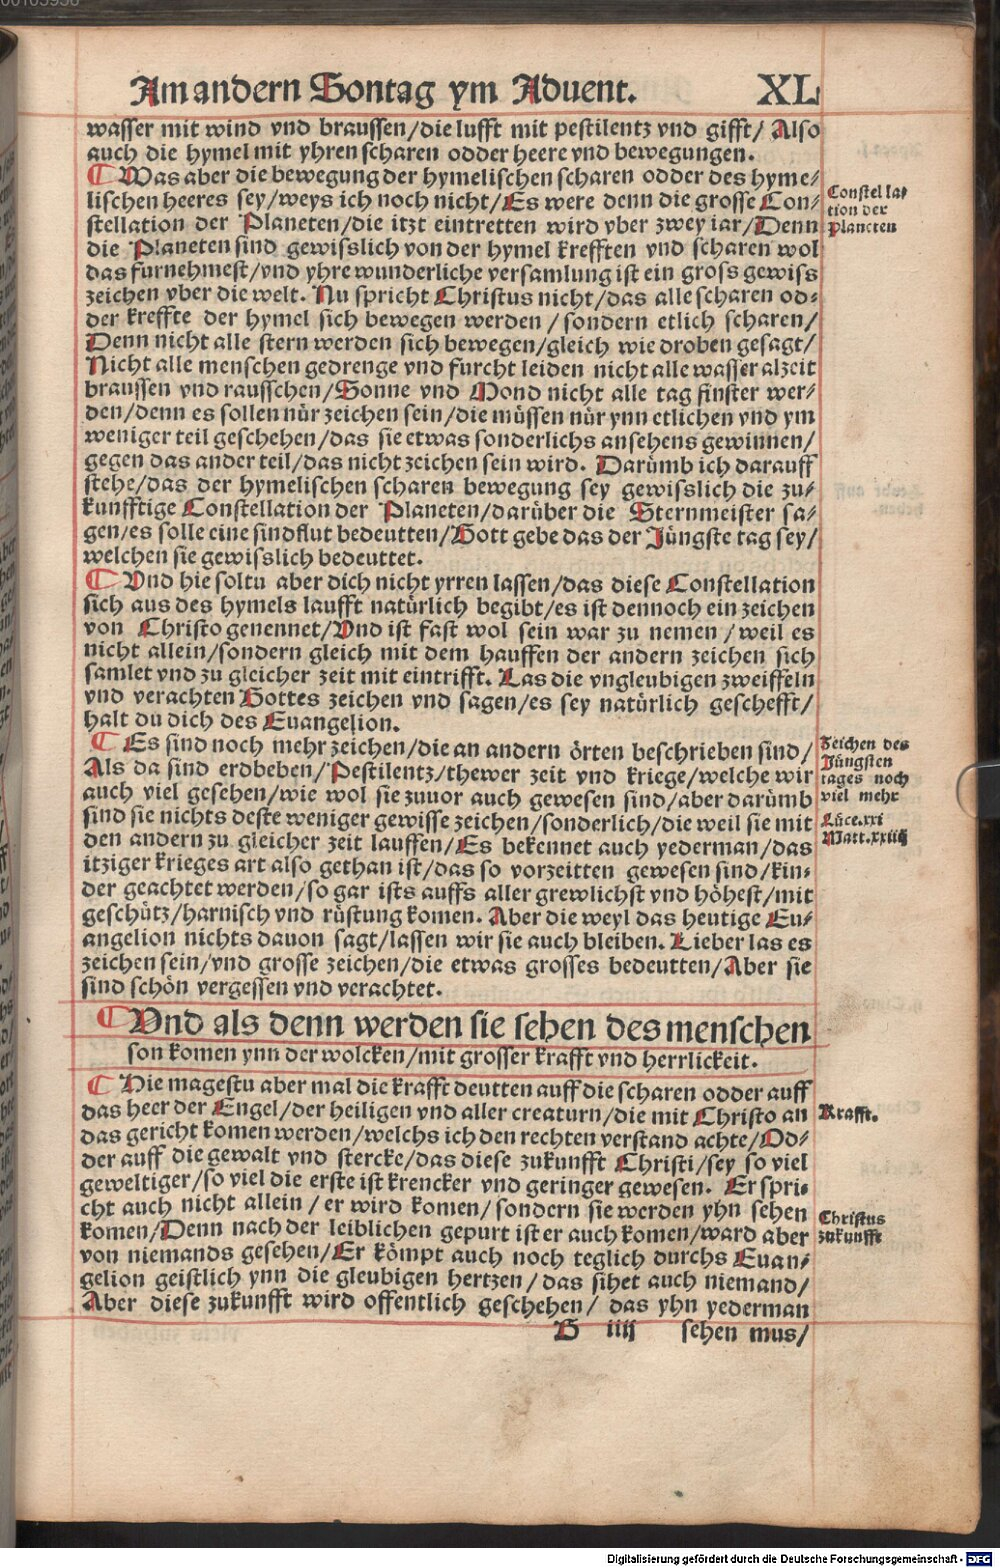 Am andern Sontag ym Aduent. XL
wasser mit wind vnd braussen/die lufft mit pestilentz vnd gifft/ Also
auch die hymel mit yhren scharen odder heere vnd bewegungen.
Was aber die bewegung der hymelischen scharen odder des hyme-
lischen heeres sey/weys ich noch nicht/Es were denn die grosse Con-
stellation der Planeten/die itzt eintretten wird vber zwey iar/Denn
die Planeten sind gewisslich von der hymel krefften vnd scharen wol
das furnehmest/vnd yhre wunderliche versamlung ist ein gross gewiss
zeichen vber die welt. Nu spricht Christus nicht/das alle scharen od-
der kreffte der hymel sich bewegen werden/sondern etlich scharen/
Denn nicht alle stern werden sich bewegen/gleich wie droben gesagt/
Nicht alle menschen gedrenge vnd furcht leiden nicht alle wasser alzeit
braussen vnd rausschen/Sonne vnd Mond nicht alle tag finster wer-
den/denn es sollen nůr zeichen sein/die můssen nůr ynn etlichen vnd ym
weniger teil geschehen/das sie etwas sonderlichs ansehens gewinnen/
gegen das ander teil/das nicht zeichen sein wird. Darůmb ich darauff
stehe/das der hymelischen scharen bewegung sey gewisslich die zu-
kunfftige Constellation der Planeten/darůber die Sternmeister sa-
gen/es solle eine sindflut bedeutten/Gott gebe das der Jůngste tag sey/
welchen sie gewisslich bedeuttet.
Vnd hie soltu aber dich nicht yrren lassen/das diese Constellation
sich aus des hymels laufft natůrlich begibt/es ist dennoch ein zeichen
von Christo genennet/Vnd ist fast wol sein war zu nemen/weil es
nicht allein/sondern gleich mit dem hauffen der andern zeichen sich
samlet vnd zu gleicher zeit mit eintrifft. Las die vngleubigen zweiffeln
vnd verachten Gottes zeichen vnd sagen/es sey natůrlich geschefft/
halt du dich des Euangelion.
Es sind noch mehr zeichen/die an andern örten beschrieben sind/
Als da sind erdbeben/Pestilentz/thewer zeit vnd kriege/welche wir
auch viel gesehen/wie wol sie zuuor auch gewesen sind/aber darůmb
sind sie nichts deste weniger gewisse zeichen/sonderlich/die weil sie mit
den andern zu gleicher zeit lauffen/Es bekennet auch yederman/das
itziger krieges art also gethan ist/das so vorzeitten gewesen sind/kin-
der geachtet werden/so gar ists auffs aller grewlichst vnd höhest/mit
geschůtz/harnisch vnd růstung komen. Aber die weyl das heutige Eu-
angelion nichts dauon sagt/lassen wir sie auch bleiben. Lieber las es
zeichen sein/vnd grosse zeichen/die etwas grosses bedeutten/Aber sie
sind schön vergessen vnd verachtet.
Vnd als denn werden sie sehen des menschen
son komen ynn der wolcken/mit grosser krafft vnd herrlickeit.
Hie magestu aber mal die krafft deutten auff die scharen odder auff
das heer der Engel/der heiligen vnd aller creaturn/die mit Christo an
das gericht komen werden/welchs ich den rechten verstand achte/Od-
der auff die gewalt vnd stercke/das diese zukunfft Christi/sey so viel
geweltiger/so viel die erste ist krencker vnd geringer gewesen. Er spri-
cht auch nicht allein/er wird komen/sondern sie werden yhn sehen
komen/Denn nach der leiblichen gepurt ist er auch komen/ward aber
von niemands gesehen/Er kömpt auch noch teglich durchs Euan-
gelion geistlich ynn die gleubigen hertzen/das sihet auch niemand/
Aber diese zukunfft wird offentlich geschehen/ das yhn yederman
G iiij sehen mus/
Constella-
tion der
Planeten
Zeichen des
Jůngsten
tages noch
viel mehr
Luce.xxi
Matt.xxiiij
Krafft.
Christus
zukunfft
Digitalisierung gefördert durch die Deutsche Forschungsgemeinschaft - DFG